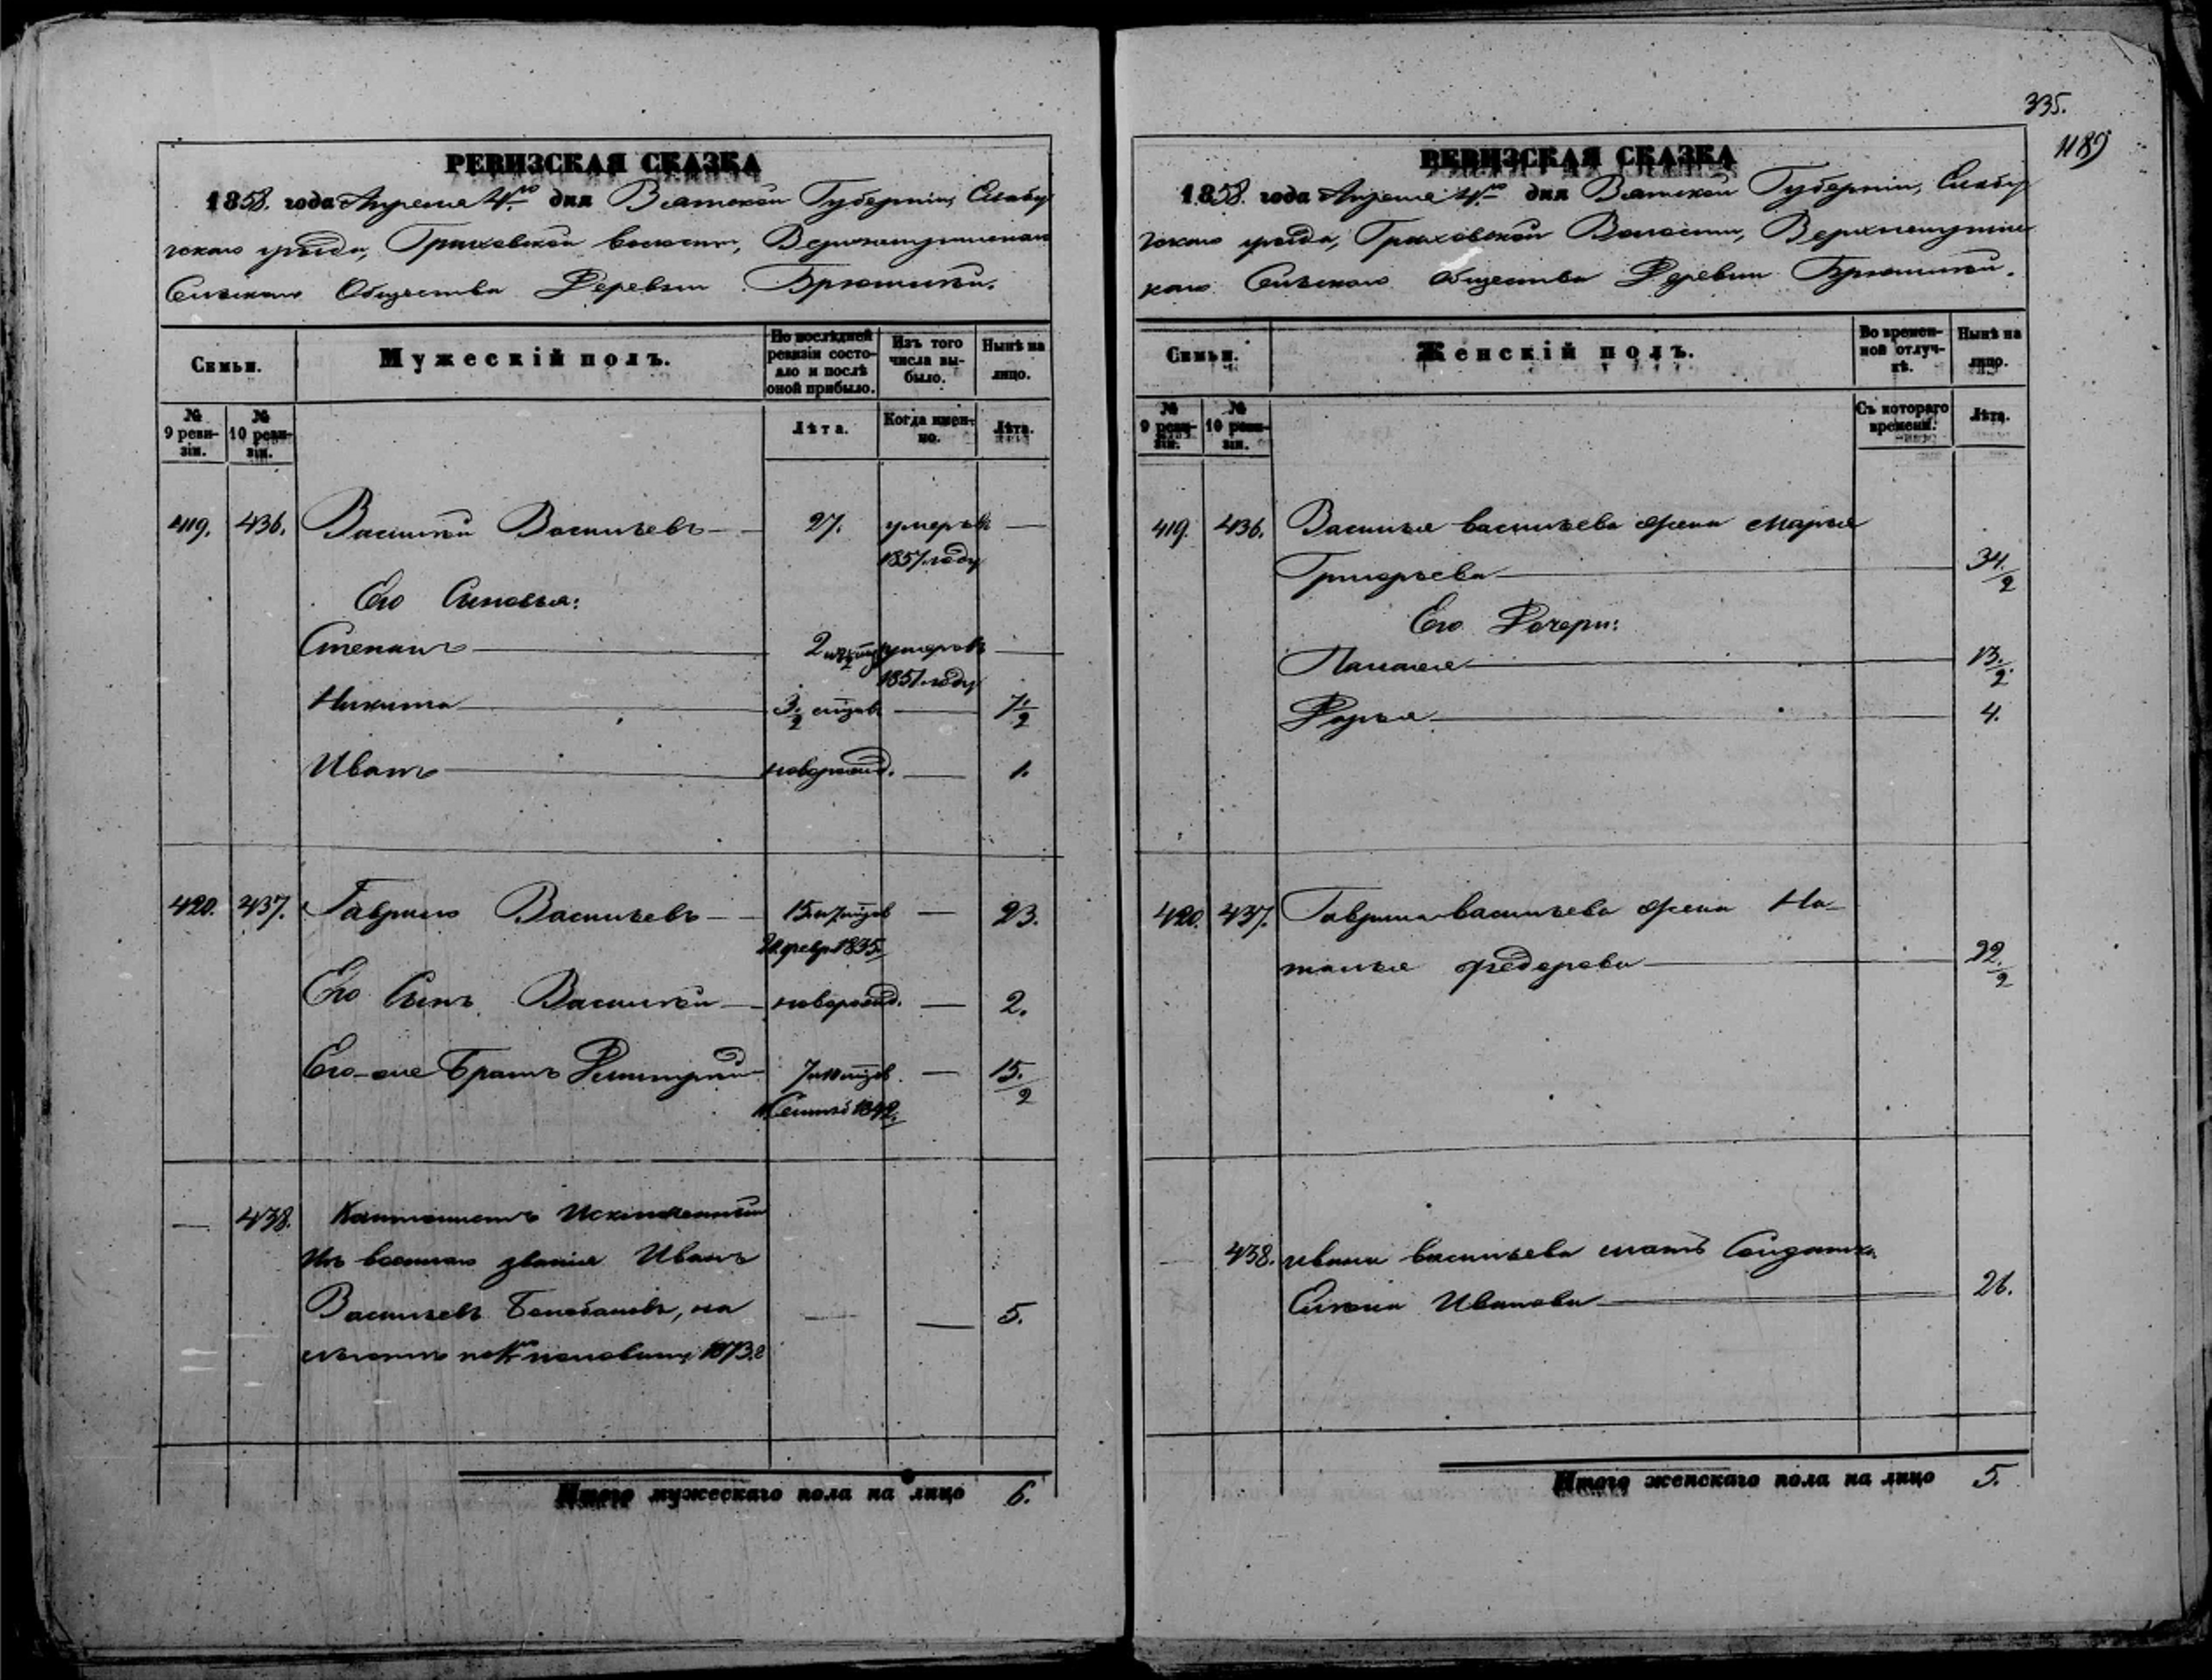 335.
1189
РЕВИЗСКАЯ СКАЗКА
1858. года Апреля 4го дня Вятской Губернии, Елабу
гскаго уезда, Граховской волости,
Сельскаго Общества Деревни Брюшили.
Семьи.
Мужескій полъ.
По послѣдней ревизіи состояло и послѣ оной прибыло.
Изъ того числа выбыло.
Нынѣ на лицо.
№ 9 ревизіи.
№ 10 ревизіи.
Лѣта.
Когда именно.
Лѣта.
419. 436. Василій Васильевъ 27. умеръ въ —
1857 году
Его Сыновья:
Степанъ 2 умеръ въ —
1851 году
Никита 3 1/2 — 7 1/2
Иванъ новорожд. — 1.
420. 437. Гаврило Васильевъ 15 и 7 — 23.
20 февр 1835
Его Сынъ Василій новорожд. — 2.
Его-же Братъ Дмитрій 7 и 10 — 15 1/2
1842.
— 438. Кантонистъ Исключенный
изъ военнаго званія Иванъ
Васильевъ — — 5.
1873.
Итого мужескаго пола на лицо 6.
РЕВИЗСКАЯ СКАЗКА
1858. года Апреля 4го дня Вятской Губерніи, Елабу
гскаго уезда, Граховской Волости,
каго Сельскаго Общества Деревни Брюшили.
Семьи.
Женскій полъ.
Во временной отлучкѣ.
Нынѣ на лицо.
№ 9 ревизіи.
№ 10 ревизіи.
Съ котораго времени.
Лѣта.
419. 436. Василья Васильева жена Марья
Григорьева 34 1/2
Его Дочери:
Палагея 13 1/2
Дарья 4.
420. 437. Гаврила Васильева жена На-
талья Федорова 22 1/2
— 438. Ивана Васильева мать Солдатка
Иванова 26.
Итого женскаго пола на лицо 5.